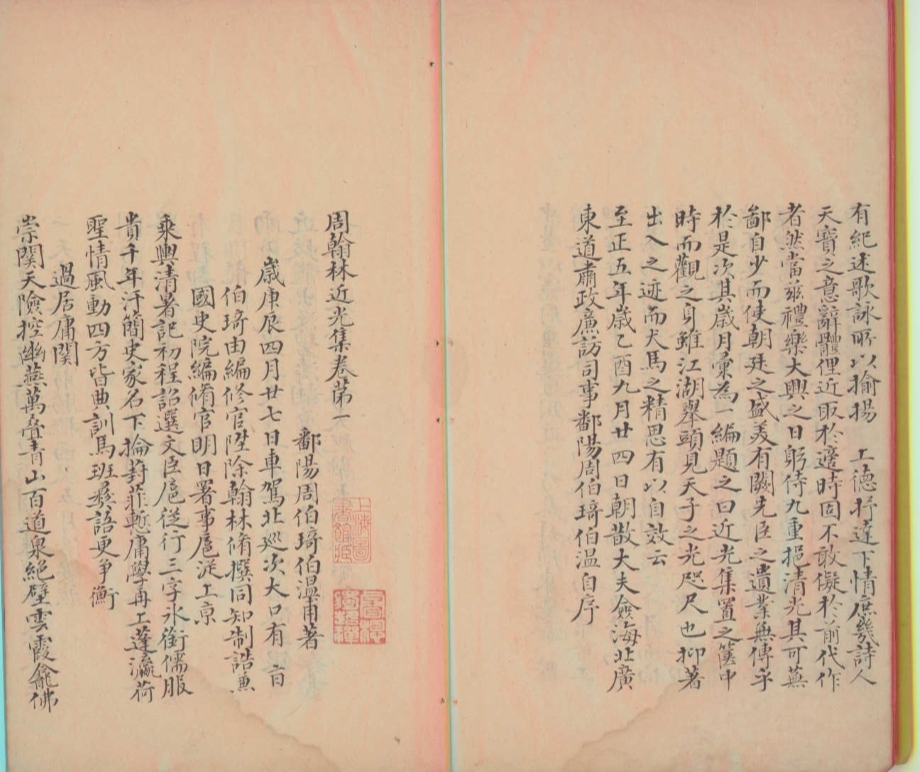 有紀述歌詠所以揄揚　上德抒達下情庶幾詩人
天寶之意辭體俚近取於適時固不敢儗於前代作
者然當玆禮樂大興之日躬侍九重挹清光其可蕪
鄙自少而使朝廷之盛美有闕先臣之遺業無傳乎
於是次其歲月彙為一編題之曰近光集置之篋中
時而觀之身雖江湖舉頭見天子之光咫尺也抑著
出入之迹而犬馬之精思有以自效云
至正五年歲乙酉九月廿四日朝散大夫僉海北廣
東道肅政廉訪司事鄱陽周伯琦伯温自序
周翰林近光集卷苐一
鄱陽周伯琦伯温甫著
歲庚辰四月廿七日車駕北巡次大口有　旨
伯琦由編修官陞除翰林脩撰同知制誥兼
國史院編脩官明日署事扈從上京
乘輿清署記初程詔選文臣扈從行三字氷銜儒服
貴千年汗簡史家名下掄葑菲慙庸學再上蓬瀛荷
聖情風動四方皆典訓馬班彞語更争衡
過居庸関
崇関天險控幽燕萬疊青山百道泉絶壁雲霞龕佛